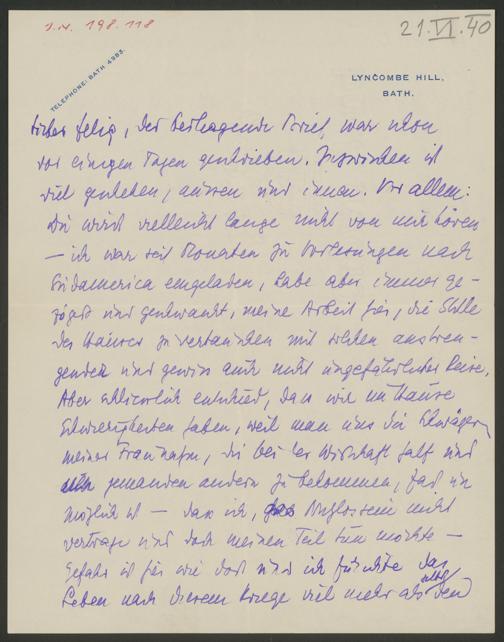 I.N. 198.118
21.VI.40
TELEPHONE: BATH 4983.
LYNCOMBE HILL,
BATH.
Lieber Felix, der beiliegende Brief war schon
vor einigen Tagen geschrieben. Inzwischen ist
viel geschehen, aussen und innen. Vor allem:
Du wirst vielleicht lange nicht von mir hören
– ich war seit Monaten zu Vorlesungen nach
Südamerica eingeladen, habe aber immer ge-
zögert und geschwankt, meine Arbeit hier, die Stille
des Hauses zu vertauschen mit solchen anstren-
genden und gewiss auch nicht ungefährlicher Reise.
Aber schliesslich entschied, dass wir im Hause
Schwierigkeiten haben, weil man uns die Schwägerin
meiner Frau nahm, die bei der Wirtschaft half und
jemanden andern zu bekommen, fast un
möglich ist – dass ich, das Unglossein nicht
vertrage und doch meinen Teil tun möchte –
Gefahr ist hier wie dort und ich fürchte das
Leben nach diesem Kriege viel mehr als den